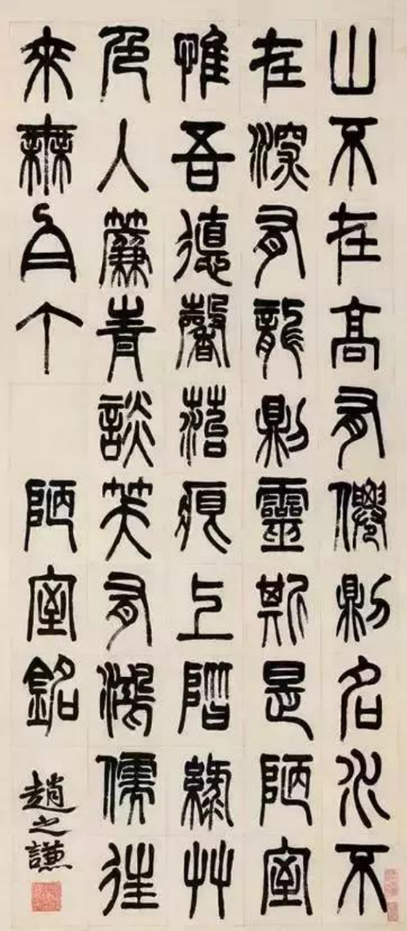 山不在高有僊則名水不
在深有龍則靈斯是陋室
惟吾德馨菭痕上階綠艸
色入簾青談笑有鴻儒往
來無白丁
陋室銘
趙之謙